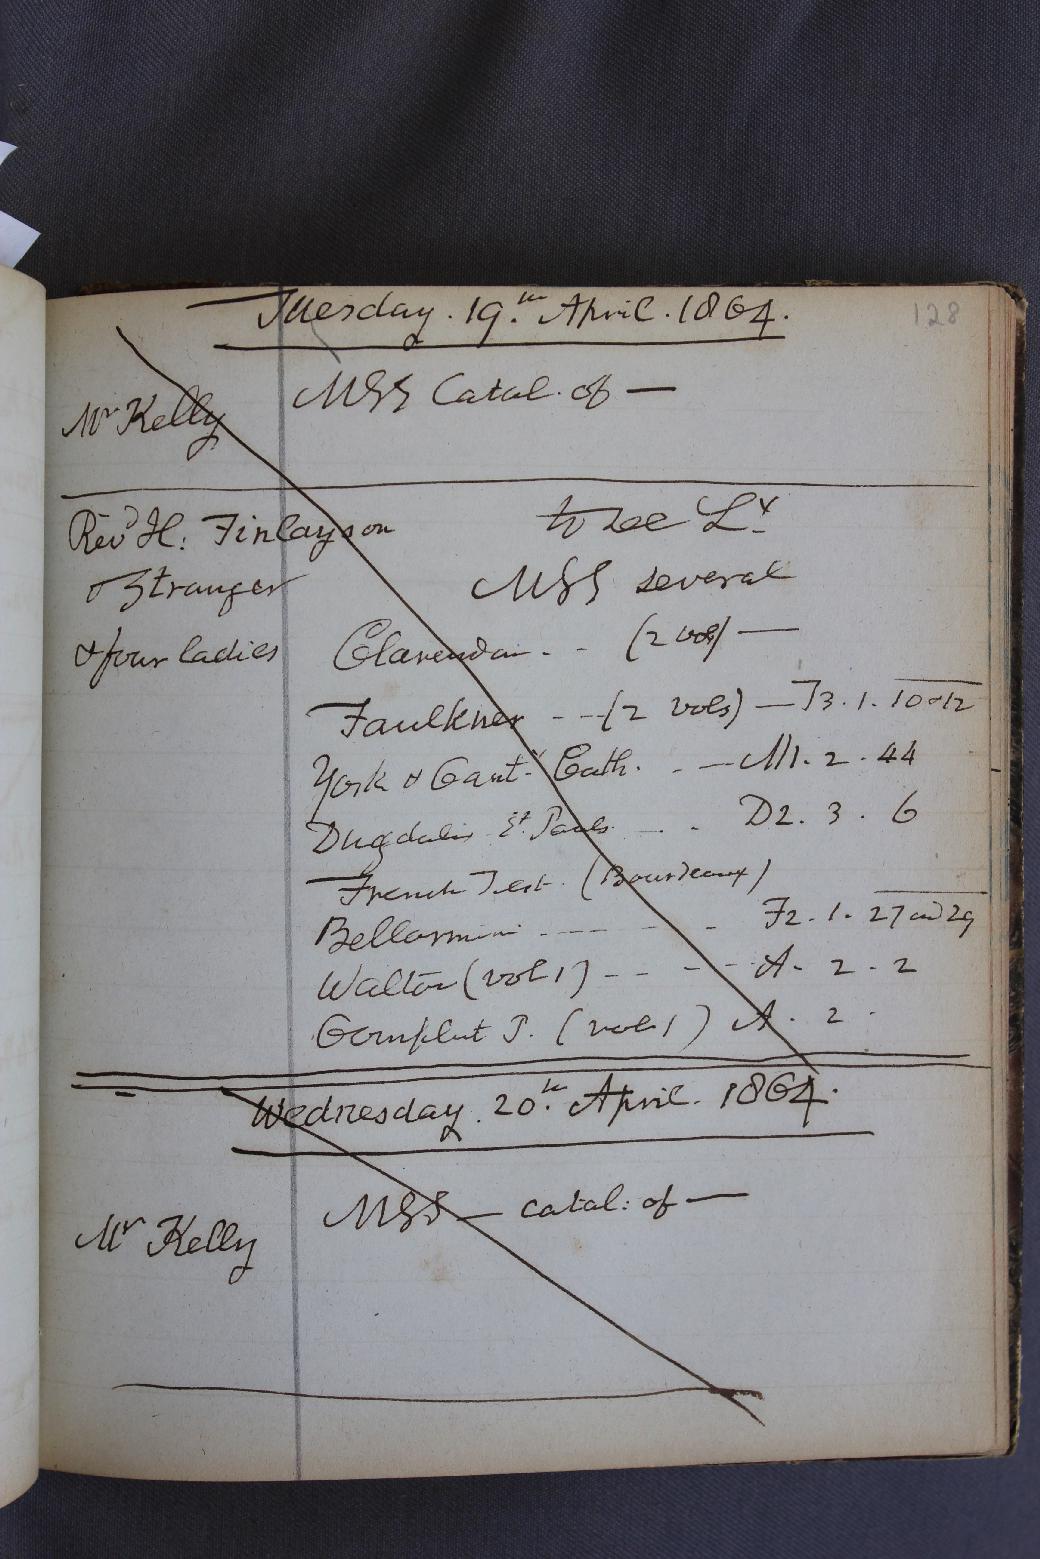 128
Tuesday. 19.th April. 1864.
Mr Kelly MSS Catal. of —
Revd H: Finlayson to see Ly
& Stranger MSS several
& four ladies Clarendon - - (2 vols) —
Faulkner - - (2 vols) — F3. 1. 10 & 12
York & Cant.y Cath. - — M1. 2. 44
Dugdales St Pauls - - D2. 3. 6
French Test. (Bourdeaux)
Bellarmini - - - - - F2. 1. 27 and 29
Walton (vol 1) - - - - A. 2. 2
Complut P. (vol. 1) A. 2.
Wednesday. 20.th April. 1864.
Mr Kelly MSS — catal: of —